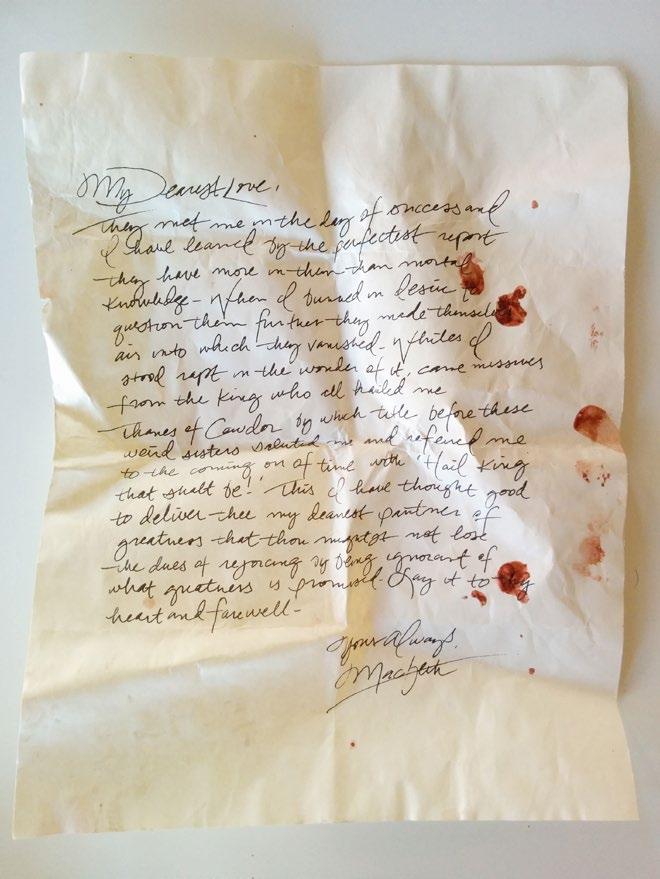 My Dearest Love,
They met me in the day of success and
I have learned by the perfectest report
they have more in them than mortal
Knowledge - When I burned in desire to
question them further they made themselves
air into which they vanished - Whiles I
stood rapt in the wonder of it, came missives
from the King who all hailed me
Thanes of Cawdor by which title before these
weird sisters saluted me and refered me
to the coming on of time with "Hail King
that shalt be!" This I have thought good
to deliver thee my dearest partner of
greatness that thou mightst not lose
the dues of rejoicing by being ignorant of
what greatness is promised. Lay it to thy
heart and farewell -
Yours Always,
Macbeth